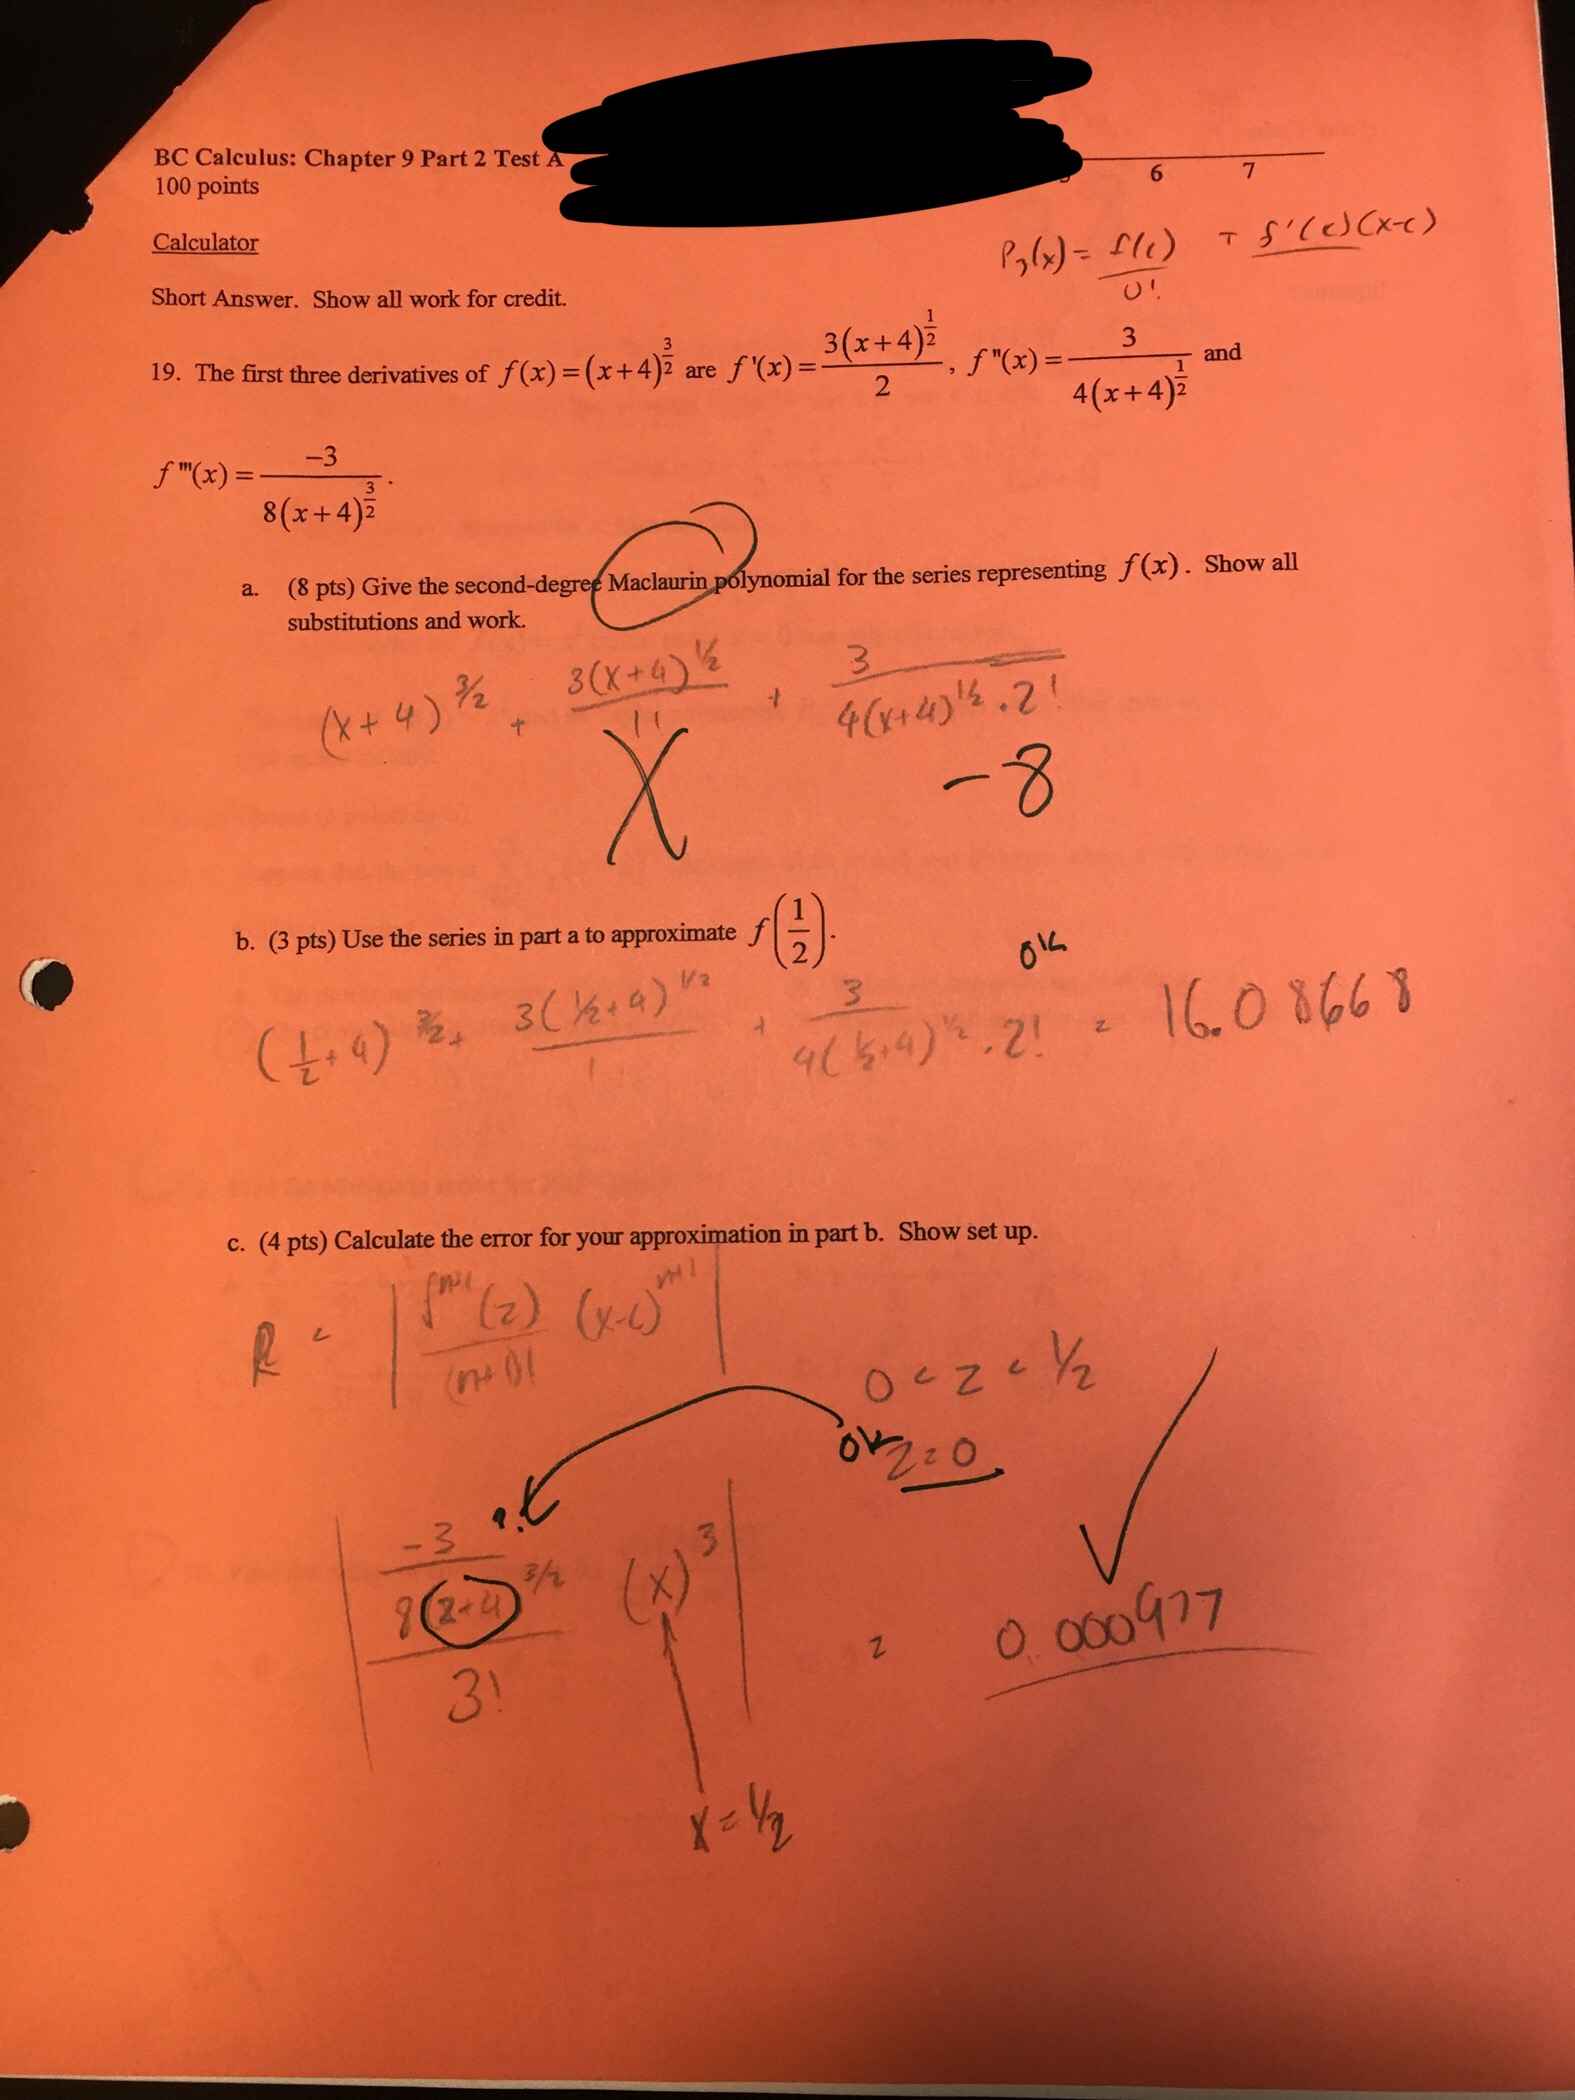 BC Calculus: Chapter 9 Part 2 Test A
6 7
100 points
Calculator
P₃(x) = f(c)/0! + f'(c)(x-c)
Short Answer. Show all work for credit.
19. The first three derivatives of f(x)=(x+4)^(3/2) are f'(x)=3(x+4)^(1/2)/2, f"(x)=3/(4(x+4)^(1/2)) and
f'''(x)=-3/(8(x+4)^(3/2)).
a. (8 pts) Give the second-degree Maclaurin polynomial for the series representing f(x). Show all
substitutions and work.
(x+4)^(3/2) + 3(x+4)^(1/2)/1! + 3/(4(x+4)^(1/2)·2!)
X -8
b. (3 pts) Use the series in part a to approximate f(1/2).
ok
(1/2+4)^(3/2) + 3(1/2+4)^(1/2)/1 + 3/(4(1/2+4)^(1/2)·2!) = 16.08668
c. (4 pts) Calculate the error for your approximation in part b. Show set up.
R = |f^(n+1)(z)/(n+1)! (x-c)^(n+1)|
0 < z < 1/2
ok z=0
?
|(-3/(8(z+4)^(3/2)))/3! (x)^3| = 0.000977
x=1/2